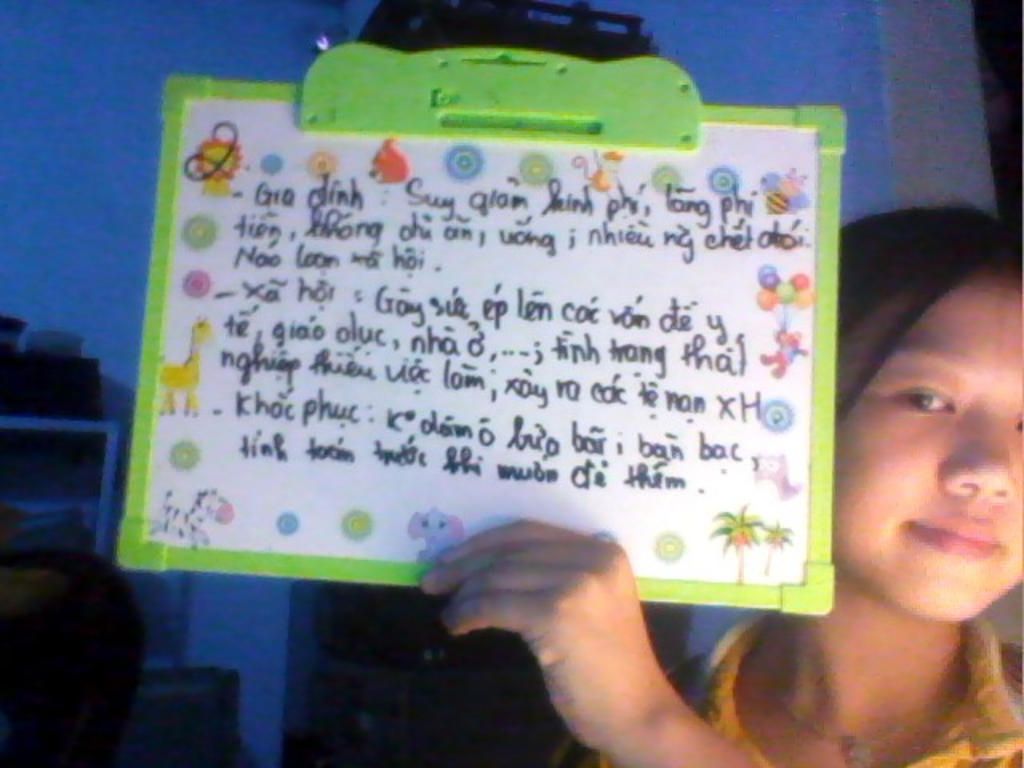 - Gia đình : Suy giảm kinh phí, lãng phí
tiền, không đủ ăn, uống ; nhiều ng chết đói.
Náo loạn xã hội.
- Xã hội : Gây sức ép lên các vấn đề y
tế, giáo dục, nhà ở, ...; tình trạng thất
nghiệp thiếu việc làm; xảy ra các tệ nạn XH
- Khắc phục : K° dâm ô bừa bãi ; bàn bạc,
tính toán trước khi muốn đẻ thêm.